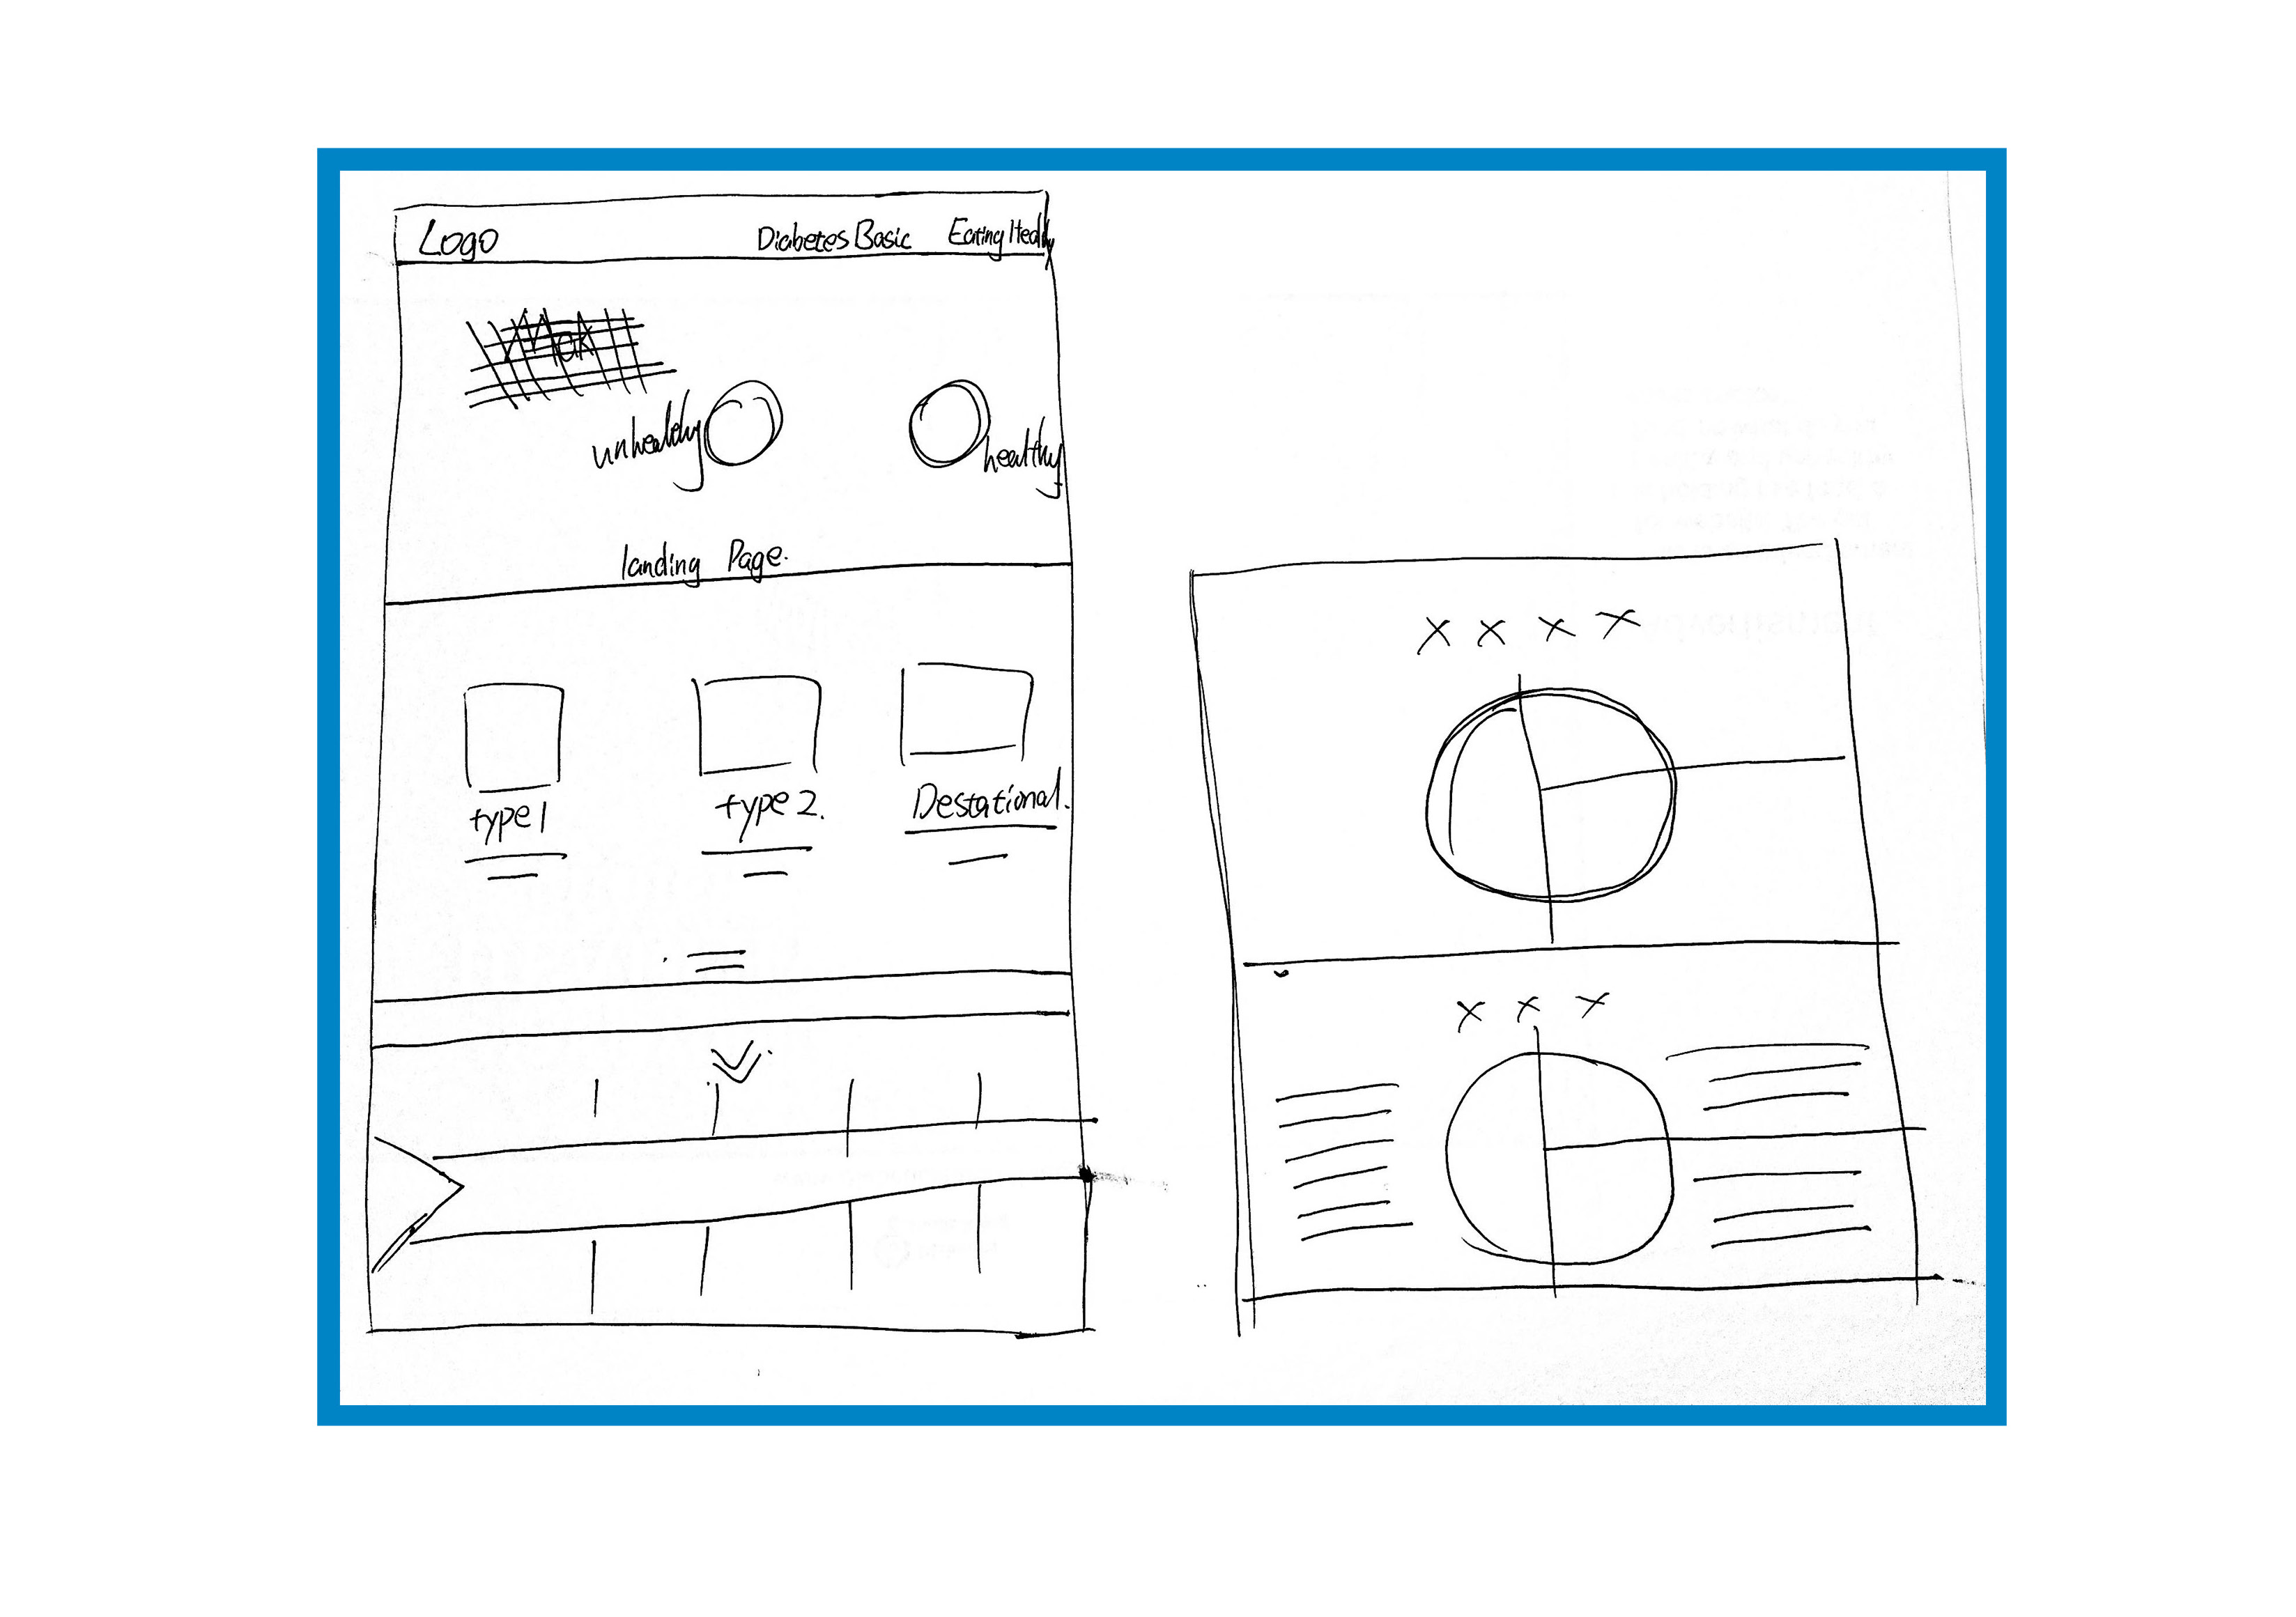 Logo Diabetes Basic Eating Healthy
unhealthy healthy
landing Page.
type 1 type 2. Destational.
x x x x
x x x